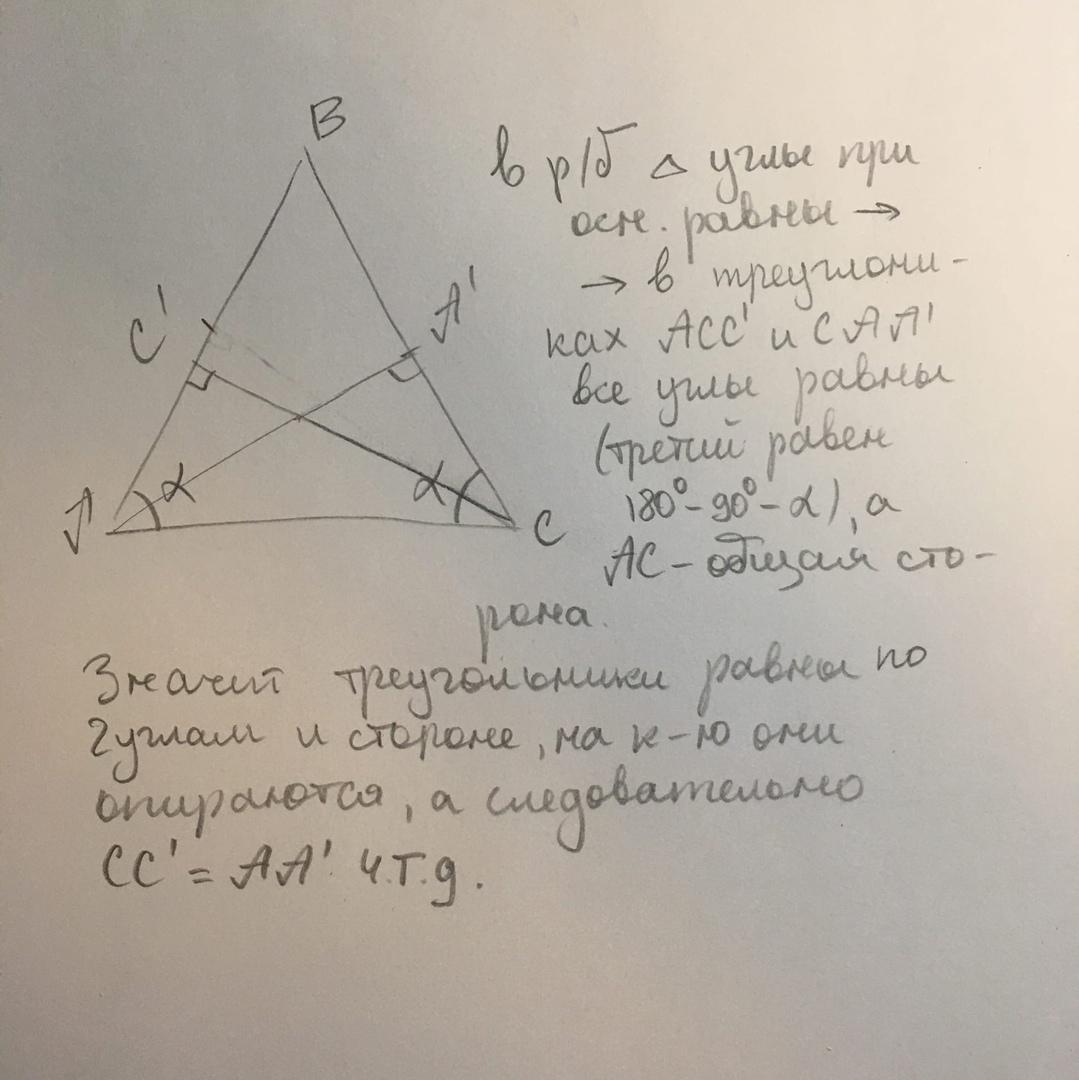 B
C'
A'
α
α
A
C
в р/б △ углы при
осн. равны →
→ в треуглони-
ках ACC' и CAA'
все углы равны
(третий равен
180°-90°-α), а
AC - общая сто-
рона.
Значит треугольники равны по
2углам и стороне, на к-ю они
опираются, а следовательно
CC' = AA' ч.т.д.